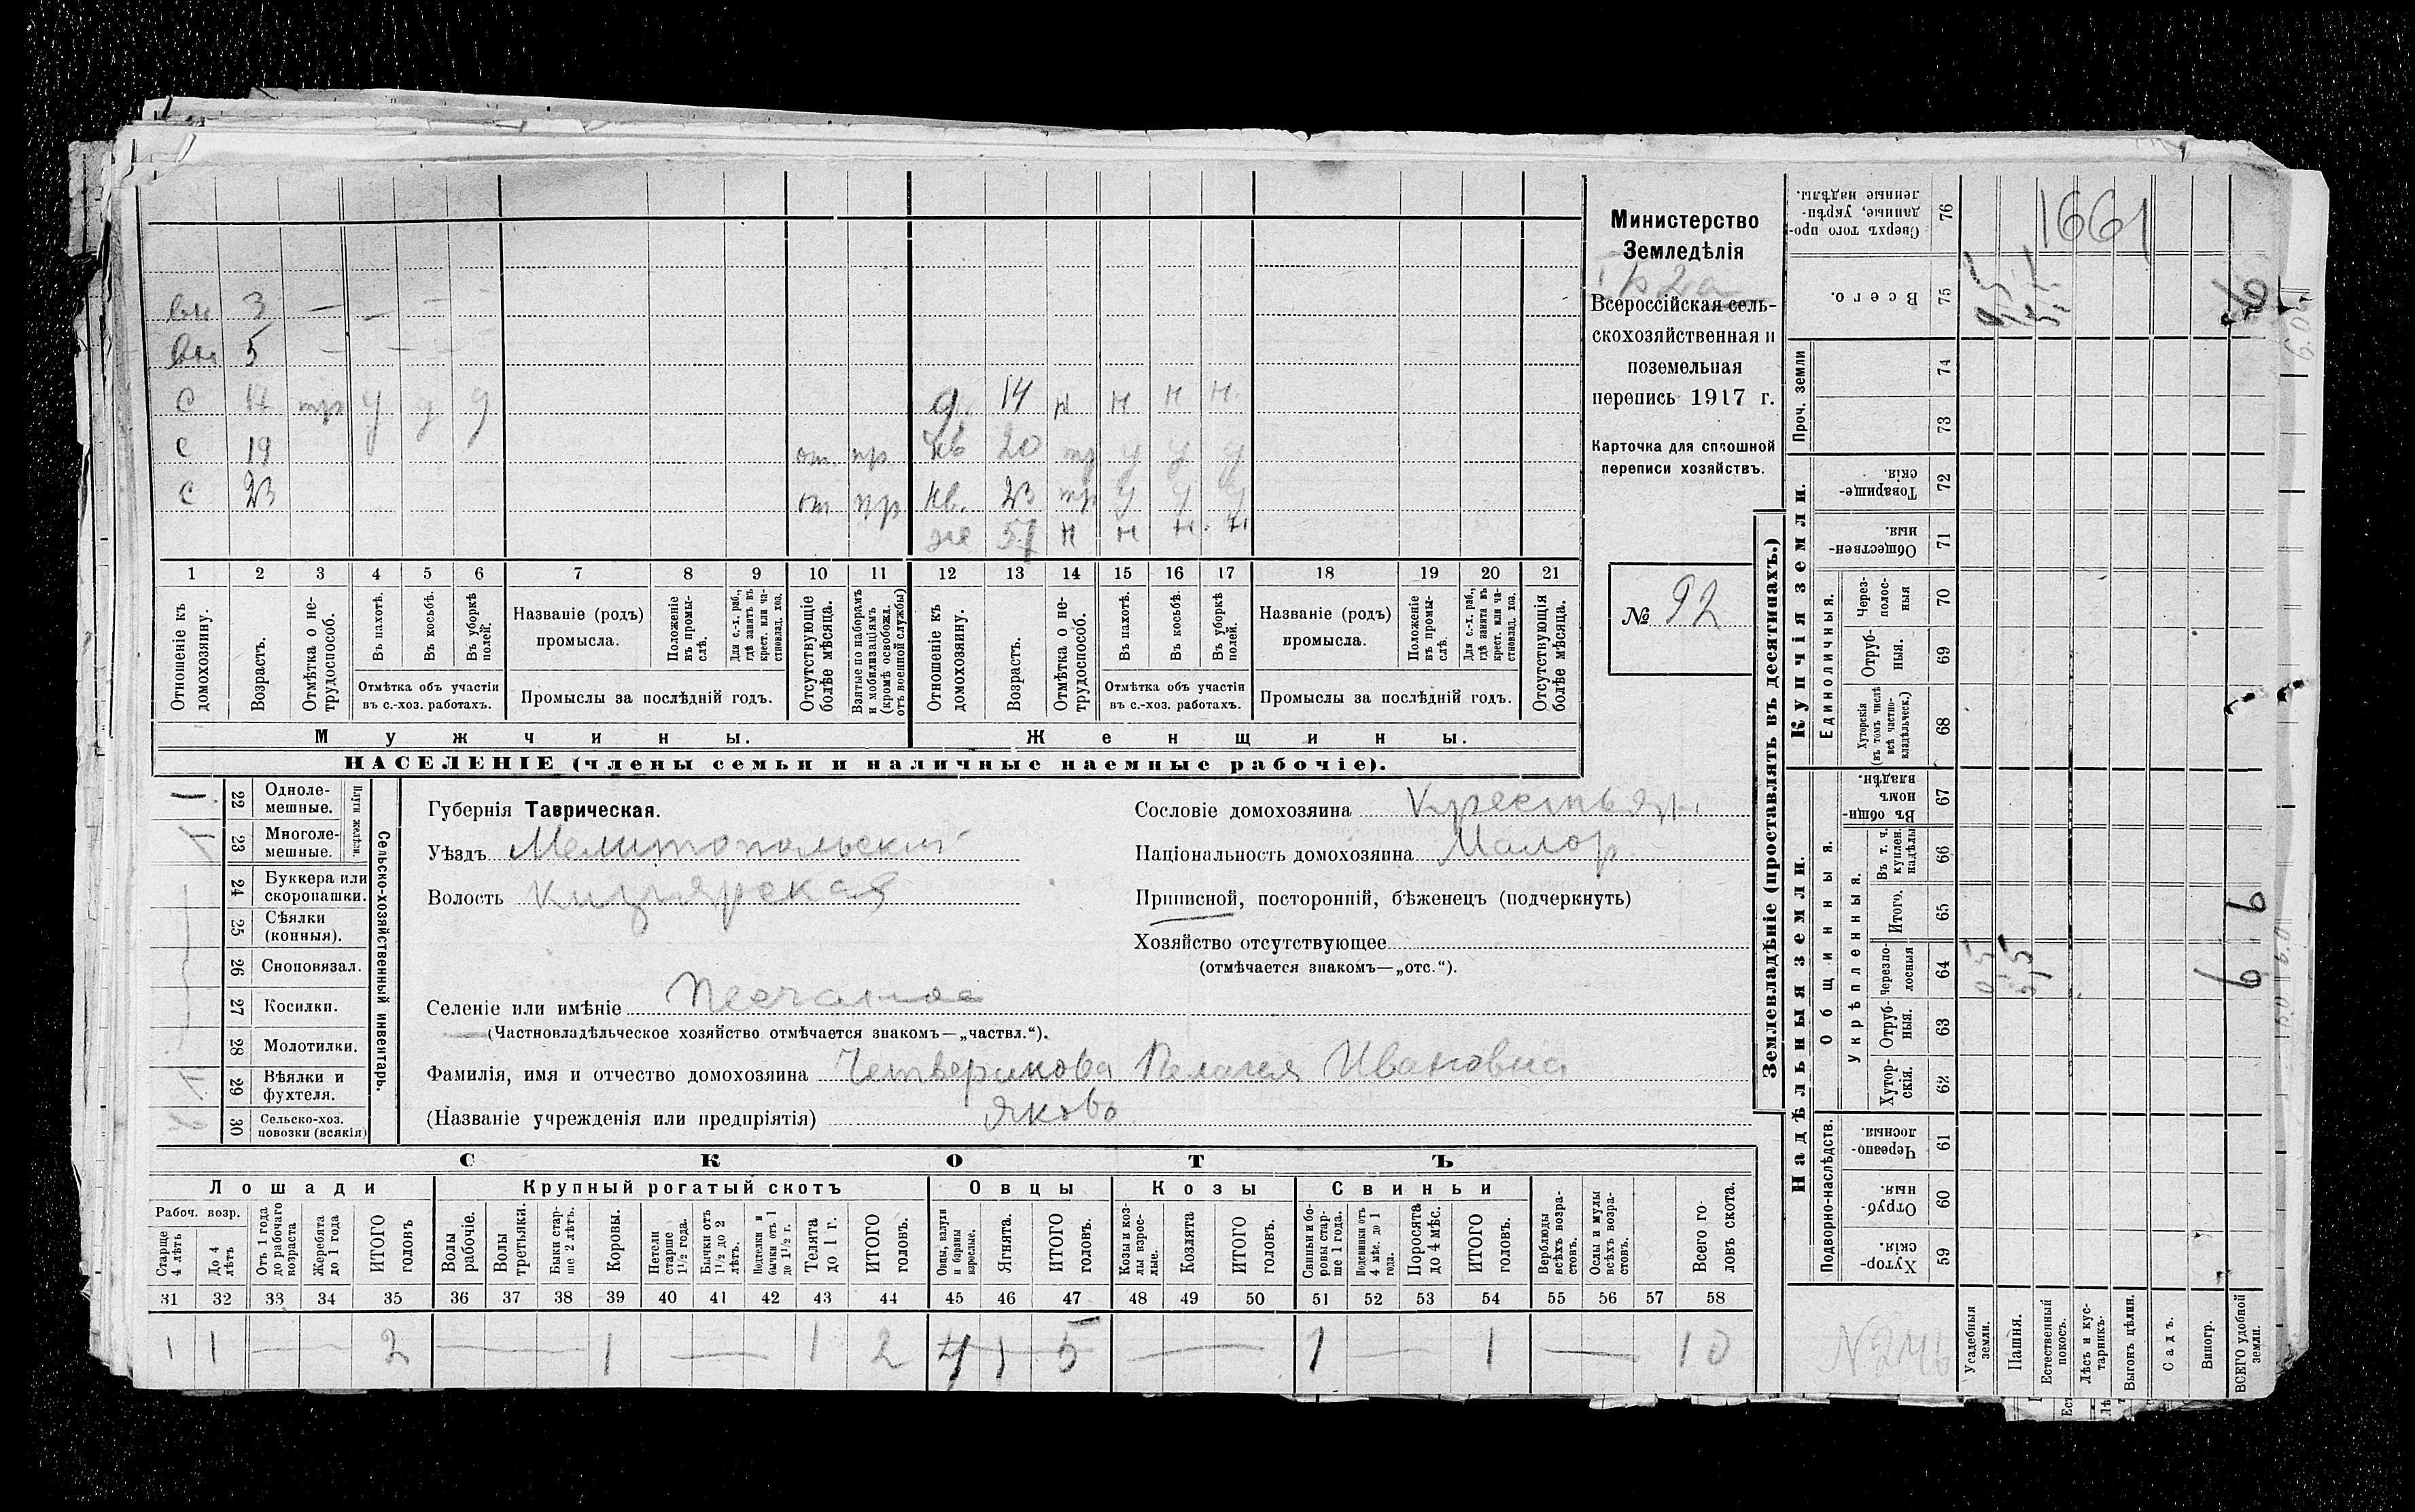 Министерство
Земледѣлія
Всероссійская сель-
скохозяйственная и
поземельная
перепись 1917 г.
Карточка для сплошной
переписи хозяйствъ.
№ 92
вн 3 — — —
вн 5 — — —
с 17 тр у у у
д. 14 н н н н.
с 19 от. пр.
нв 20 тр у у у
с 23 от пр
нв. 23 тр у у у
же 57 н н н. н
1 2 3 4 5 6 7 8 9 10 11 12 13 14 15 16 17 18 19 20 21
Отношеніе къ домохозяину.
Возрастъ.
Отмѣтка о не-трудоспособ.
Въ пахотѣ.
Въ косьбѣ.
Въ уборкѣ полей.
Отмѣтка объ участіи въ с.-хоз. работахъ.
Названіе (родъ) промысла.
Положеніе въ промы-слѣ.
Для с.-х. раб., гдѣ занятъ въ крест. или ча-стновлад. хоз.
Промыслы за послѣдній годъ.
Отсутствующіе болѣе мѣсяца.
Взятые по наборамъ и мобилизаціямъ (кромѣ освобожд. отъ военной службы)
Отношеніе къ домохозяину.
Возрастъ.
Отмѣтка о не-трудоспособ.
Въ пахотѣ.
Въ косьбѣ.
Въ уборкѣ полей.
Отмѣтка объ участіи въ с.-хоз. работахъ.
Названіе (родъ) промысла.
Положеніе въ промы-слѣ.
Для с.-х. раб., гдѣ занятъ въ крест. или ча-стновлад. хоз.
Промыслы за послѣдній годъ.
Отсутствующія болѣе мѣсяца.
Мужчины. Женщины.
НАСЕЛЕНІЕ (члены семьи и наличные наемные рабочіе).
22 Одноле-мешные.
23 Многоле-мешные.
Плуги желѣзн.
24 Буккера или скоропашки.
25 Сѣялки (конныя).
26 Сноповязал.
27 Косилки.
28 Молотилки.
29 Вѣялки и фухтеля.
30 Сельско-хоз. повозки (всякія)
Сельско-хозяйственный инвентарь.
Губернія Таврическая.
Уѣздъ Мелитопольскій
Волость Кизіярская
Селеніе или имѣніе Песчаное
(Частновладѣльческое хозяйство отмѣчается знакомъ—„частвл.“).
Фамилія, имя и отчество домохозяина Четверикова Пелагея Ивановна
(Названіе учрежденія или предпріятія) Яковъ
Сословіе домохозяина Крестьян.
Національность домохозяина Малор.
Приписной, посторонній, бѣженец (подчеркнуть)
Хозяйство отсутствующее
(отмѣчается знакомъ—„отс.“).
СКОТЪ
Лошади Крупный рогатый скотъ Овцы Козы Свиньи
Рабоч. возр.
Старше 4 лѣтъ
До 4 лѣтъ
Отъ 1 года до рабочаго возраста
Жеребята до 1 года
ИТОГО головъ
Волы рабочіе.
Волы третьяки.
Быки стар-ше 2 лѣтъ.
Коровы.
Нетели старше 1½ года.
Бычки отъ 1½ до 2 лѣтъ.
Подтелки и бычки отъ 1 до 1½ г.
Телята до 1 г.
ИТОГО головъ.
Овцы, валухи и бараны взрослые.
Ягнята.
ИТОГО головъ.
Козы и коз-лы взрос-лые.
Козлята
ИТОГО головъ.
Свиньи и бо-ровы стар-ше 1 года.
Подсвинки отъ 4 мѣс. до 1 года.
Поросята до 4 мѣс.
ИТОГО головъ.
Верблюды всѣхъ возра-стовъ.
Ослы и мулы всѣхъ возра-стовъ.
Всего го-ловъ скота.
31 32 33 34 35 36 37 38 39 40 41 42 43 44 45 46 47 48 49 50 51 52 53 54 55 56 57 58
1 1 — 2 — 1 — 1 2 4 1 5 — 1 — 1 — 10
Землевладѣніе (проставлять въ десятинахъ.)
Надѣльныя земли. Купчія земли. Проч. земли
Общинныя.
Укрѣпленныя.
Подворно-наслѣдств.
Единоличныя.
76 Сверхъ того про-данные, укрѣп-ленные надѣлы.
1661
75 Всего.
74
73
72 Товарище-скія.
71 Обществен-ныя
70 Через-полос-ныя
69 Отруб-ныя.
68 Хуторскія (въ томъ числѣ всѣ частно-владѣльческ.)
67 Въ общин-номъ владѣн.
66 Въ т. ч. куплен. надѣлы
65 Итого.
64 Черезпо-лосныя
63 Отруб-ныя.
62 Хутор-скія.
61 Черезпо-лосныя.
60 Отруб-ныя.
59 Хутор-скія.
Усадебныя земли.
Пашня.
Естественный покосъ.
Лѣсъ и кус-тарникъ.
Выгонъ цѣлин.
Садъ.
Виногр.
ВСЕГО удобной земли.